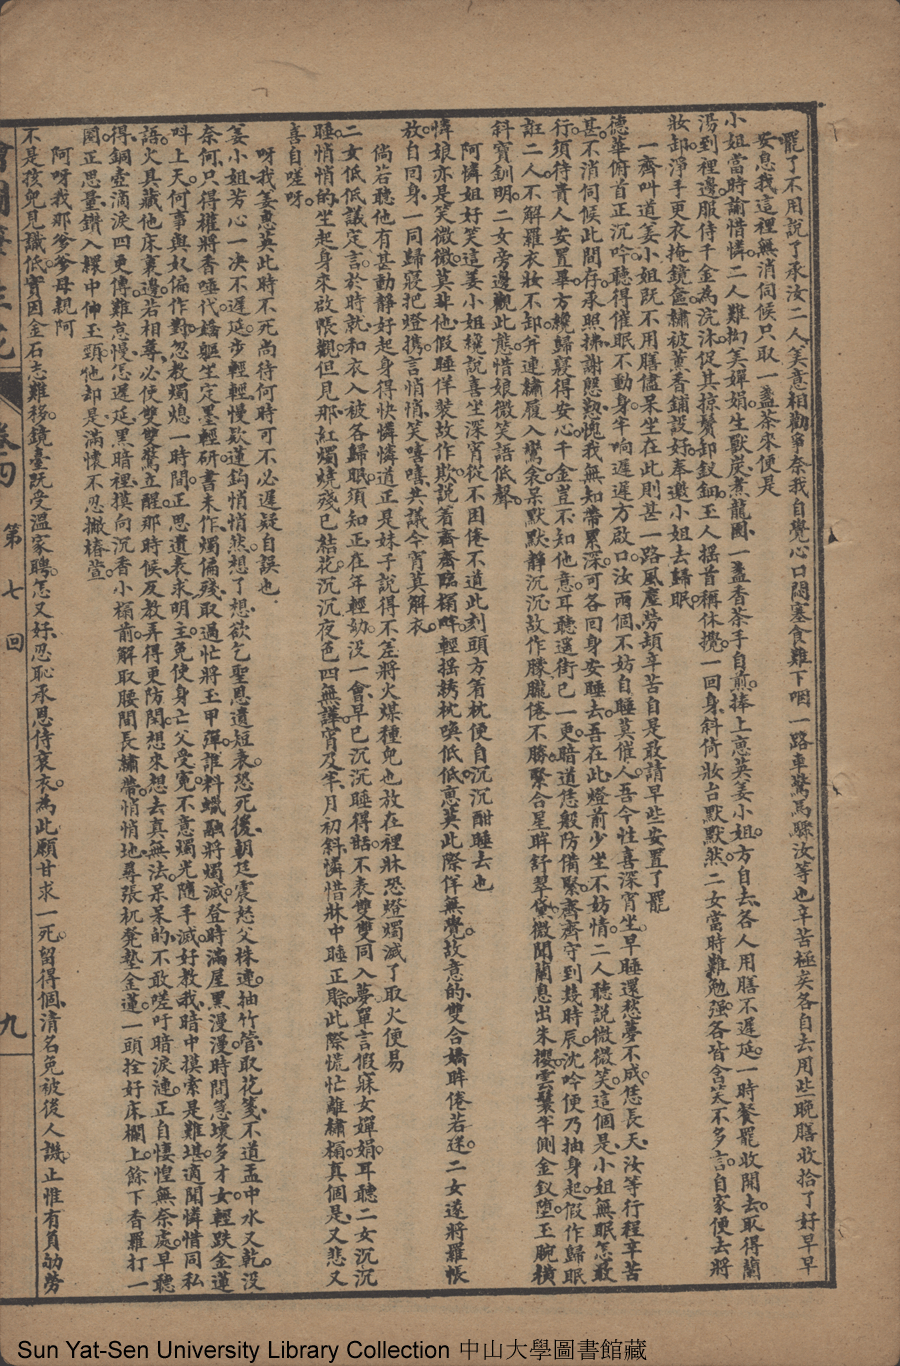 罷了不用說了承汝二人美意相勸爭奈我自覺心口悶塞食難下咽一路車驚馬驟汝等也辛苦極矣各自去用些晚膳收拾了好早早
安息我這裡無消伺候只取一盞茶來便是
小姐當時諭惜憐二人難拗美嬋娟生獸炭煮龍團一盞香茶手自煎捧上蕙英姜小姐方自去各人用膳不遲延一時餐罷收開去取得蘭
湯到裡邊服侍千金為浣沐促其掠鬢卸釵鈿玉人搖首稱休攪一回身斜倚妝台默默然二女當時難勉强各皆含笑不多言自家便去將
妝卸淨手更衣掩鏡奩繡被薰香鋪設好奉邀小姐去歸眠
一齊叫道姜小姐既不用膳儘呆坐在此則甚一路風塵勞頓辛苦自是敢請早些安置了罷
德華俯首正沉吟聽得催眠不動身半响遲遲方啟口汝兩個不妨自睡莫催人吾今性喜深宵坐早睡還愁夢不成恁長天汝等行程辛苦
甚不消伺候此間存承照拂謝慇懃愧我無知帶累深可各回身安睡去吾在此燈前少坐不妨情二人聽說微微笑這個是小姐無眠怎敢
行須待貴人安置畢方纔歸寢得安心千金豈不知他意耳聽遥街已一更暗道恁般防備緊齊齊守到幾時辰沈吟便乃抽身起假作歸眠
誑二人不解羅衣妝不卸并連繡履入鴛衾呆默默靜沉沉故作朦朧倦不勝緊合星眸舒翠黛微聞蘭息出朱櫻雲鬟半側金釵墮玉腕橫
斜寶釧明二女旁邊觀此態惜娘微笑語低聲
阿憐姐好笑這姜小姐纔說喜坐深宵從不困倦不道此刻頭方着枕便自沉沉酣睡去也
憐娘亦是笑微微莫非他假睡佯裝故作欺說着齊齊臨榻畔輕搖綉枕喚低低蕙英此際佯無覺故意的雙合嬌眸倦若迷二女遂將羅帳
放自回身一同歸寢把燈携言悄悄笑嘻嘻共議今宵莫解衣
倘若聽他有甚動靜好起身得快憐憐道正是妹子說得不差將火煤種兒也放在裡牀恐燈燭滅了取火便易
二女低低議定言於時就和衣入被各歸眠須知正在年輕幼沒一會早已沉沉睡得甜不表雙雙同入夢單言假寐女嬋娟耳聽二女沉沉
睡悄悄的坐起身來啟帳觀但見那紅燭燒殘已結花沉沉夜色四無譁宵及半月初斜憐惜牀中睡正賒此際慌忙離繡榻真個是又悲又
喜自嗟呀
呀我姜蕙英此時不死尚待何時可不必遲疑自誤也
姜小姐芳心一決不遲延步輕輕慢款蓮鈎悄悄然想了想欲乞聖恩遺短表恐死後朝廷震怒父株連抽竹管取花箋不道盂中水又乾沒
奈何只得權將香唾代嬌軀坐定墨輕研書未作燭偏殘取過忙將玉甲彈誰料蠟融將燭滅登時滿屋黑漫漫時間急壞多才女輕跌金蓮
呌上天何事與奴偏作對忽教燭熄一時間正思遺表求明主免使身亡父受寃不意燭光隨手滅好教我暗中摸索是難堪適聞憐惜同私
語火具藏他床裏邊若相尋必使雙雙驚立醒那時候反教弄得更防閑想來想去真無法呆呆的不敢嗟吁暗淚漣正自悽惶無奈處早聽
得銅壺滴淚四更傳難怠慢怎遲延黑暗裡摸向沉香小榻前解取腰間長繡帶悄悄地尋張杌凳墊金蓮一頭拴好床欄上餘下香羅打一
圈正思量鑽入纓中伸玉頸他却是滿懷不忍撇椿萱
阿呀我那爹爹母親阿
不是孩兒見識低實因金石志難移鏡臺既受溫家聘怎又好忍恥承恩侍袞衣為此願甘求一死留得個清名免被後人譏止惟有負劬勞
卷四
第七回
九
Sun Yat-Sen University Library Collection 中山大學圖書館藏